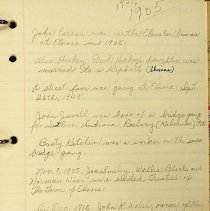 1905
John Carson was in the Elevator business
at Elnora in 1905.
Hickey, Dad Hickeys daughter was
married to a Lipball (Thomas)
A street fair was going at Elnora, Sept.
26th, 1905.
John Jewell was boss of a bridge gang
for Southern Indiana Railway
Busty Ketchem was a worker on the same
bridge gang.
Nov. 7, 1905, Wallie Black and
were elected Trustees of
the Town of Elnora.
Dec. 1905, John R. Welsh, owner of the